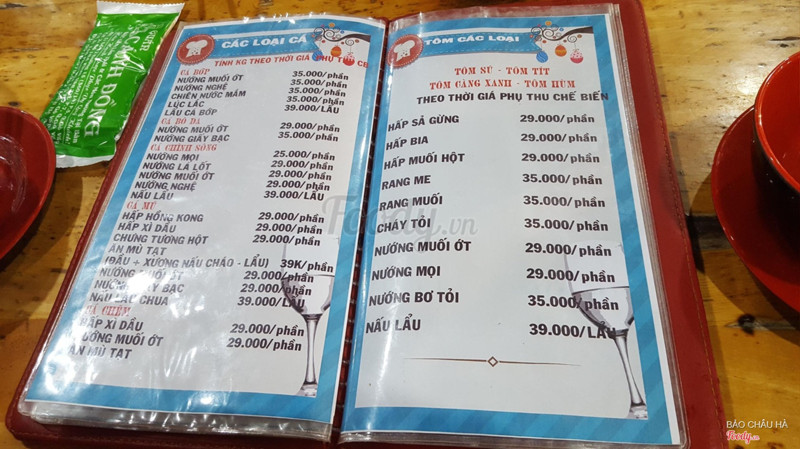 CÁC LOẠI CÁ
TÍNH KG THEO THỜI GIÁ PHỤ THU CB
CÁ BỚP
NƯỚNG MUỐI ỚT 35.000/phần
NƯỚNG NGHỆ 35.000/phần
CHIÊN NƯỚC MẮM 35.000/phần
LÚC LẮC 35.000/phần
LẨU CÁ BỚP 39.000/LẨU
CÁ BÒ DA
NƯỚNG MUỐI ỚT 29.000/phần
NƯỚNG GIẤY BẠC 35.000/phần
CÁ CHÌNH SÔNG
NƯỚNG MỌI 25.000/phần
NƯỚNG LÁ LỐT 29.000/phần
NƯỚNG MUỐI ỚT 29.000/phần
NƯỚNG NGHỆ 29.000/phần
NẤU LẨU 39.000/LẨU
CÁ MÚ
HẤP HỒNG KONG 29.000/phần
HẤP XÌ DẦU 29.000/phần
CHƯNG TƯƠNG HỘT 29.000/phần
ĂN MÙ TẠT
(ĐẦU + XƯƠNG NẤU CHÁO - LẨU) 39K/phần
NƯỚNG MUỐI ỚT 29.000/phần
NƯỚNG GIẤY BẠC 29.000/phần
NẤU LẨU CHUA 39.000/LẨU
CÁ CHẼM
HẤP XÌ DẦU 29.000/phần
NƯỚNG MUỐI ỚT 29.000/phần
ĂN MÙ TẠT
TÔM CÁC LOẠI
TÔM SÚ - TÔM TÍT
TÔM CÀNG XANH - TÔM HÙM
THEO THỜI GIÁ PHỤ THU CHẾ BIẾN
HẤP SẢ GỪNG 29.000/phần
HẤP BIA 29.000/phần
HẤP MUỐI HỘT 29.000/phần
RANG ME 35.000/phần
RANG MUỐI 35.000/phần
CHÁY TỎI 35.000/phần
NƯỚNG MUỐI ỚT 29.000/phần
NƯỚNG MỌI 29.000/phần
NƯỚNG BƠ TỎI 35.000/phần
NẤU LẨU 39.000/LẨU
Foody.vn
BẢO CHÂU HÀ
Foody.vn